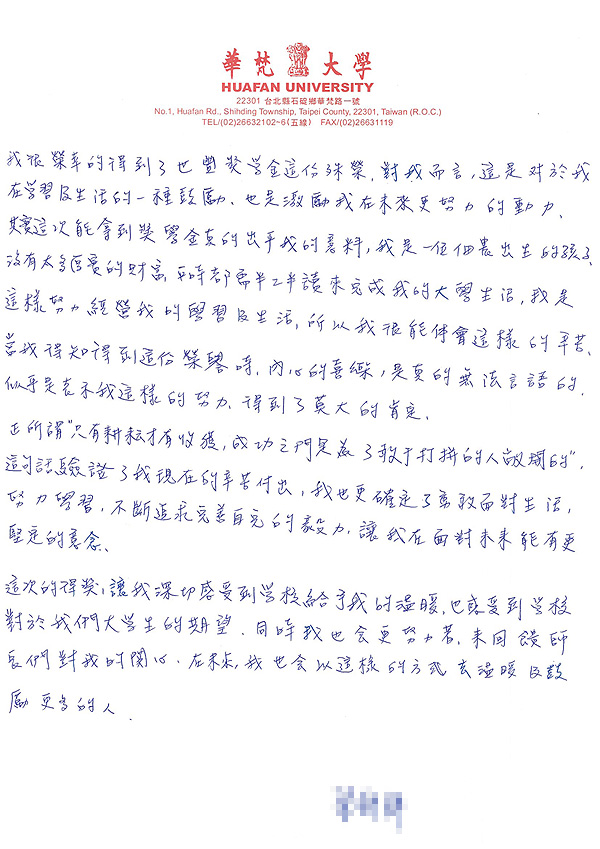 華梵大學
HUAFAN UNIVERSITY
22301 台北縣石碇鄉華梵路一號
No.1, Huafan Rd., Shihding Township, Taipei County, 22301, Taiwan (R.O.C.)
TEL/(02)26632102~6(五線) FAX/(02)26631119
我很榮幸的得到了也豐獎学金這份殊榮,對我而言,這是对於我
在学習及生活的一種鼓勵、也是激勵我在未來更努力的動力、
其實這次能拿到獎學金真的出乎我的意料,我是一位佃農出生的孩子、
沒有太多厚實的財富,平時都需半工半讀來完成我的大學生活,我是
這樣努力經營我的學習及生活,所以我很能体會這樣的辛苦、
當我得知得到這份榮譽時,內心的喜樂,是真的無法言語的、
似乎是表示我這樣的努力、得到了莫大的肯定、
正所謂"只有耕耘才有收獲,成功之門是為了敢于打拼的人敞開的",
這句話驗證了我現在的辛苦付出,我也更確定了勇敢面對生活,
努力學習,不斷追求完善自己的毅力,讓我在面對未來能有更
堅定的意念、
這次的得獎,讓我深切感受到学校給予我的溫暖,也感受到学校
對於我們大学生的期望.同時我也會更努力著,來回饋師
長們對我的関心.在未來,我也会以這樣的方式去溫暖及鼓
勵更多的人.